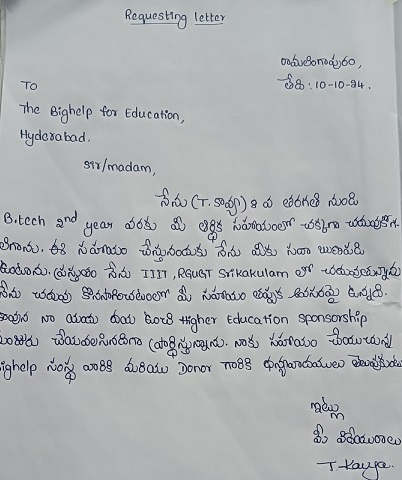 Requesting letter
రామలింగాపురం,
తేది : 10-10-24.
TO
The Bighelp for Education,
Hyderabad.
sir/madam,
నేను (T. కావ్య) 8 వ తరగతి నుండి
B.tech 2nd year వరకు మీ ఆర్థిక సహాయంతో చక్కగా చదువుకోగ
లిగాను. ఈ సహాయం చేస్తునందుకు నేను మీకు సదా ఋణపడి
ఉంటాను. ప్రస్తుతం నేను IIIT, RGUKT Srikakulam లో చదువుతున్నాను
నేను చదువు కొనసాగించటంలో మీ సహాయం తప్పక అవసరమై ఉన్నది.
కావున నా యందు దయ ఉంచి Higher Education sponsorship
మంజూరు చేయవలసినదిగా ప్రార్థిస్తున్నాను. నాకు సహాయం చేయుచున్న
ighelp సంస్థ వారికి మరియు Donor గారికి ధన్యవాదములు తెలుపుకుంటు
ఇట్లు
మీ విధేయురాలు
T. Kavya.